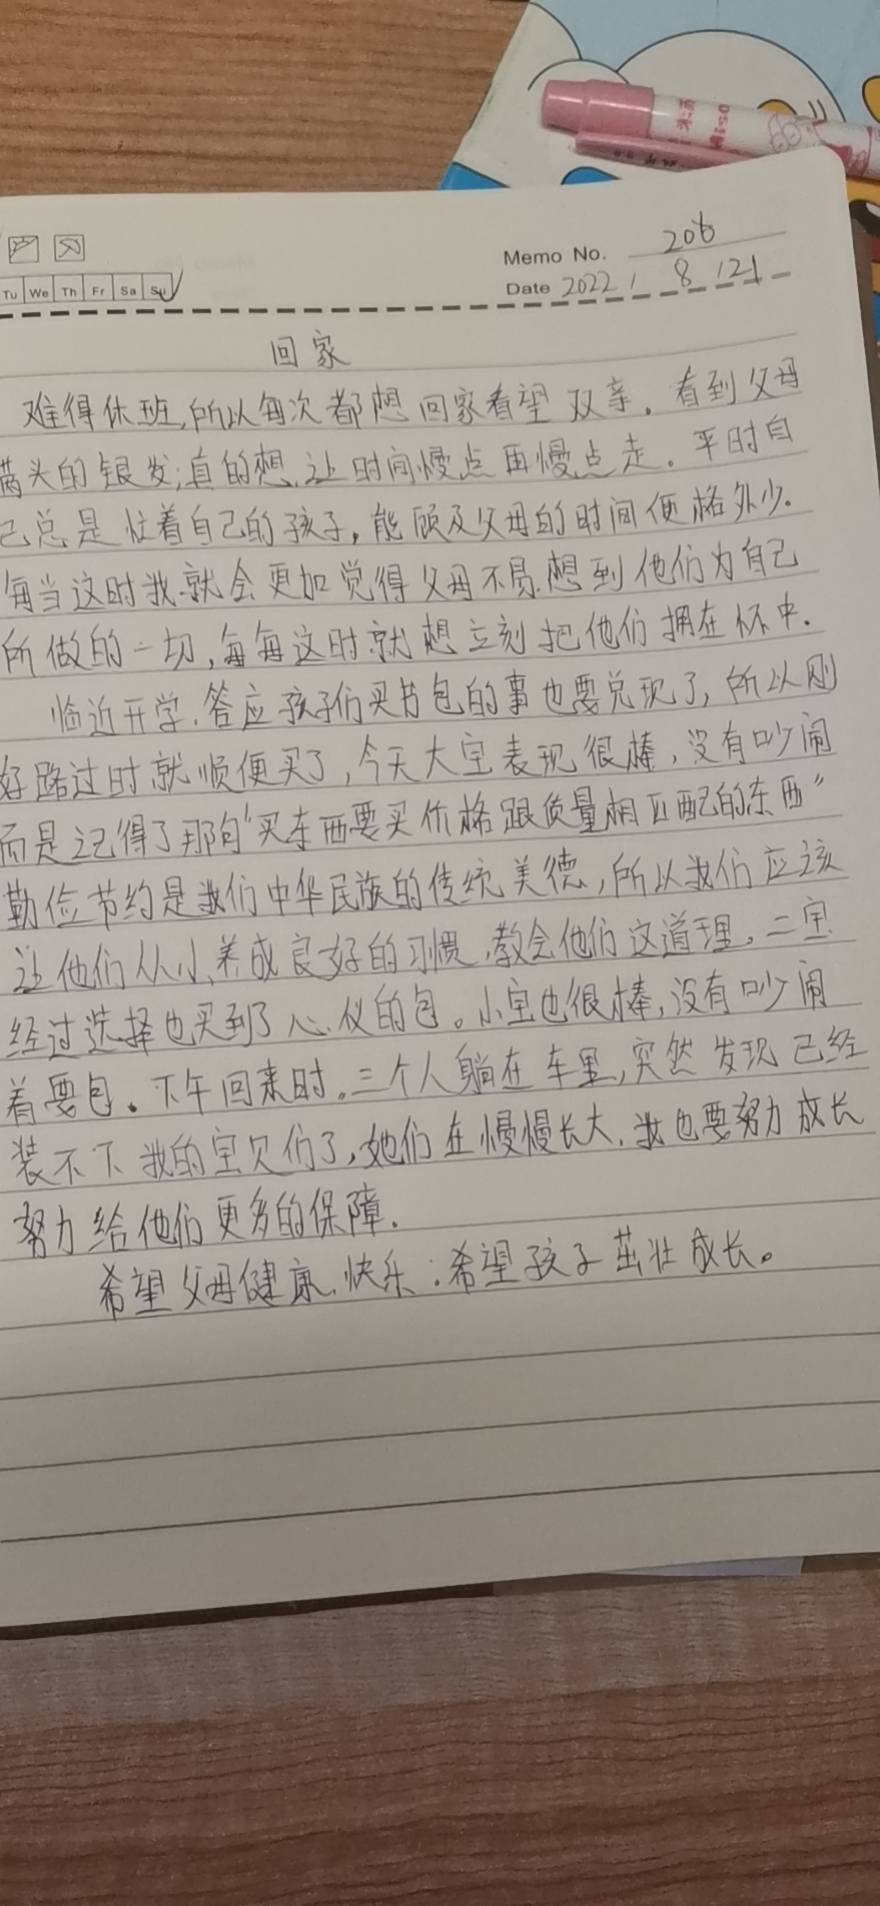 Memo No. 206
Tu We Th Fr Sa Su
Date 2022 / 8 / 21
回家
难得休班,所以每次都想回家看望双亲。看到父母
满头的银发,真的想让时间慢点再慢点走。平时自
己总是忙着自己的孩子,能顾及父母的时间便格外少.
每当这时我就会更加觉得父母不易.想到他们为自己
所做的一切,每每这时就想立刻把他们拥在怀中.
临近开学.答应孩子们买书包的事也要兑现了,所以刚
好路过时就顺便买了,今天大宝表现很棒,没有吵闹
而是记得了那句“买东西要买价格跟质量相匹配的东西”
勤俭节约是我们中华民族的传统美德,所以我们应该
让他们从小养成良好的习惯,教会他们这道理。二宝
经过选择也买到了心仪的包。小宝也很棒,没有吵闹
着要包。下午回来时。三个人躺在车里,突然发现已经
装不下我的宝贝们了,她们在慢慢长大.我也要努力成长
努力给他们更多的保障.
希望父母健康.快乐.希望孩子茁壮成长。